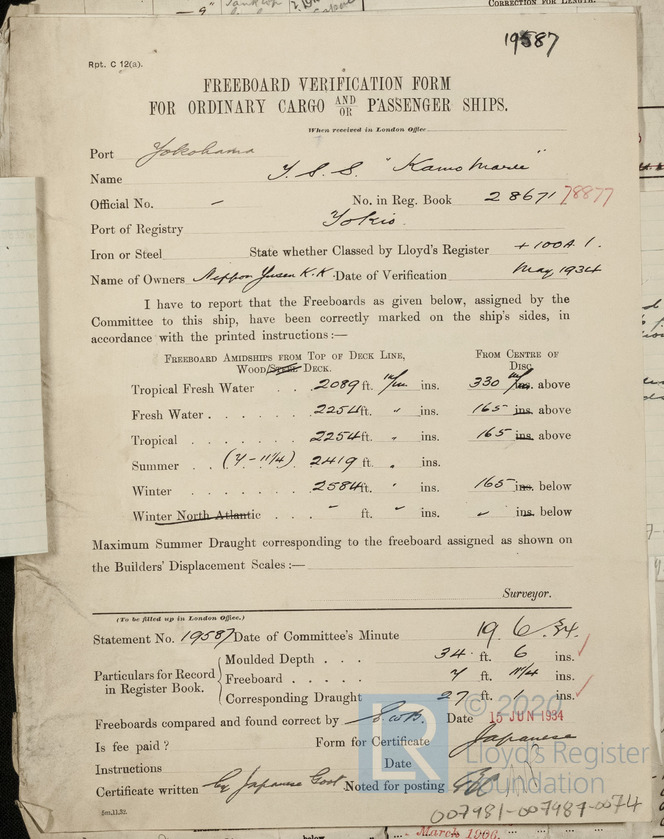 CORRECTION FOR LENGTH.
19587
Rpt. C 12(a).
FREEBOARD VERIFICATION FORM
FOR ORDINARY CARGO AND/OR PASSENGER SHIPS.
When received in London Office
Port Yokohama
Name T. S. S. "Kamo Maru"
Official No. - No. in Reg. Book 28671 78877
Port of Registry Tokio.
Iron or Steel State whether Classed by Lloyd's Register +100A 1.
Name of Owners Nippon Yusen K.K. Date of Verification May, 1934
I have to report that the Freeboards as given below, assigned by the
Committee to this ship, have been correctly marked on the ship's sides, in
accordance with the printed instructions:—
FREEBOARD AMIDSHIPS FROM TOP OF DECK LINE, FROM CENTRE OF
WOOD/STEEL DECK. DISC.
Tropical Fresh Water . . 2089 ft. m/m ins. 330 m/m ins. above
Fresh Water . . . . . . . 2254 ft. " ins. 165 ins. above
Tropical . . . . . . . 2254 ft. " ins. 165 ins. above
Summer . . (7-11¼) 2419 ft. " ins.
Winter . . . . . . . 2584 ft. " ins. 165 ins. below
Winter North Atlantic . . . - ft. - ins. - ins. below
Maximum Summer Draught corresponding to the freeboard assigned as shown on
the Builders' Displacement Scales:—
Surveyor.
(To be filled up in London Office.)
Statement No. 19587 Date of Committee's Minute 19. 6. 34.
Particulars for Record in Register Book.
Moulded Depth . . . 34 ft. 6 ins.
Freeboard . . . . . 7 ft. 11¼ ins.
Corresponding Draught 27 ft. 1 ins.
Freeboards compared and found correct by S.W.B. Date 15 JUN 1934
Is fee paid? Form for Certificate Japanese
Instructions Date
Certificate written by Japanese Govt. Noted for posting
5m,11,32.
007981-007987-0074
© 2020
LR
Lloyd's Register
Foundation
below
March 1966.